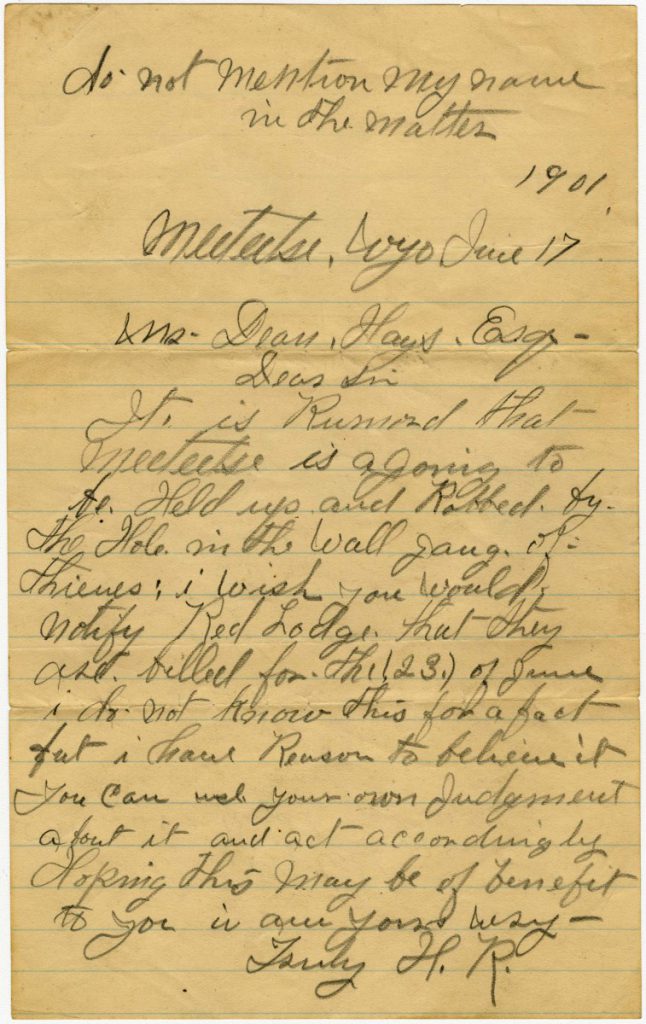 do not Mention My name
in the Matter
1901
Meeteetse, Wyo June 17
Mr. Dean, Hays. Esq-
Dear Sir
It. is Rumord that
Meeteetse is agoing to
be. Held up and Robbed. by.
the Hole in the Wall gang. of-
thieves; i Wish you would,
notify Red Lodge. that they
are. billed for. the (23.) of June
i do not know this for a fact
but i have Reason to believe it
You can use your own Judgment
about it and act accordingly
Hoping this May be of benefit
to you i am yours very-
Truly H. R.